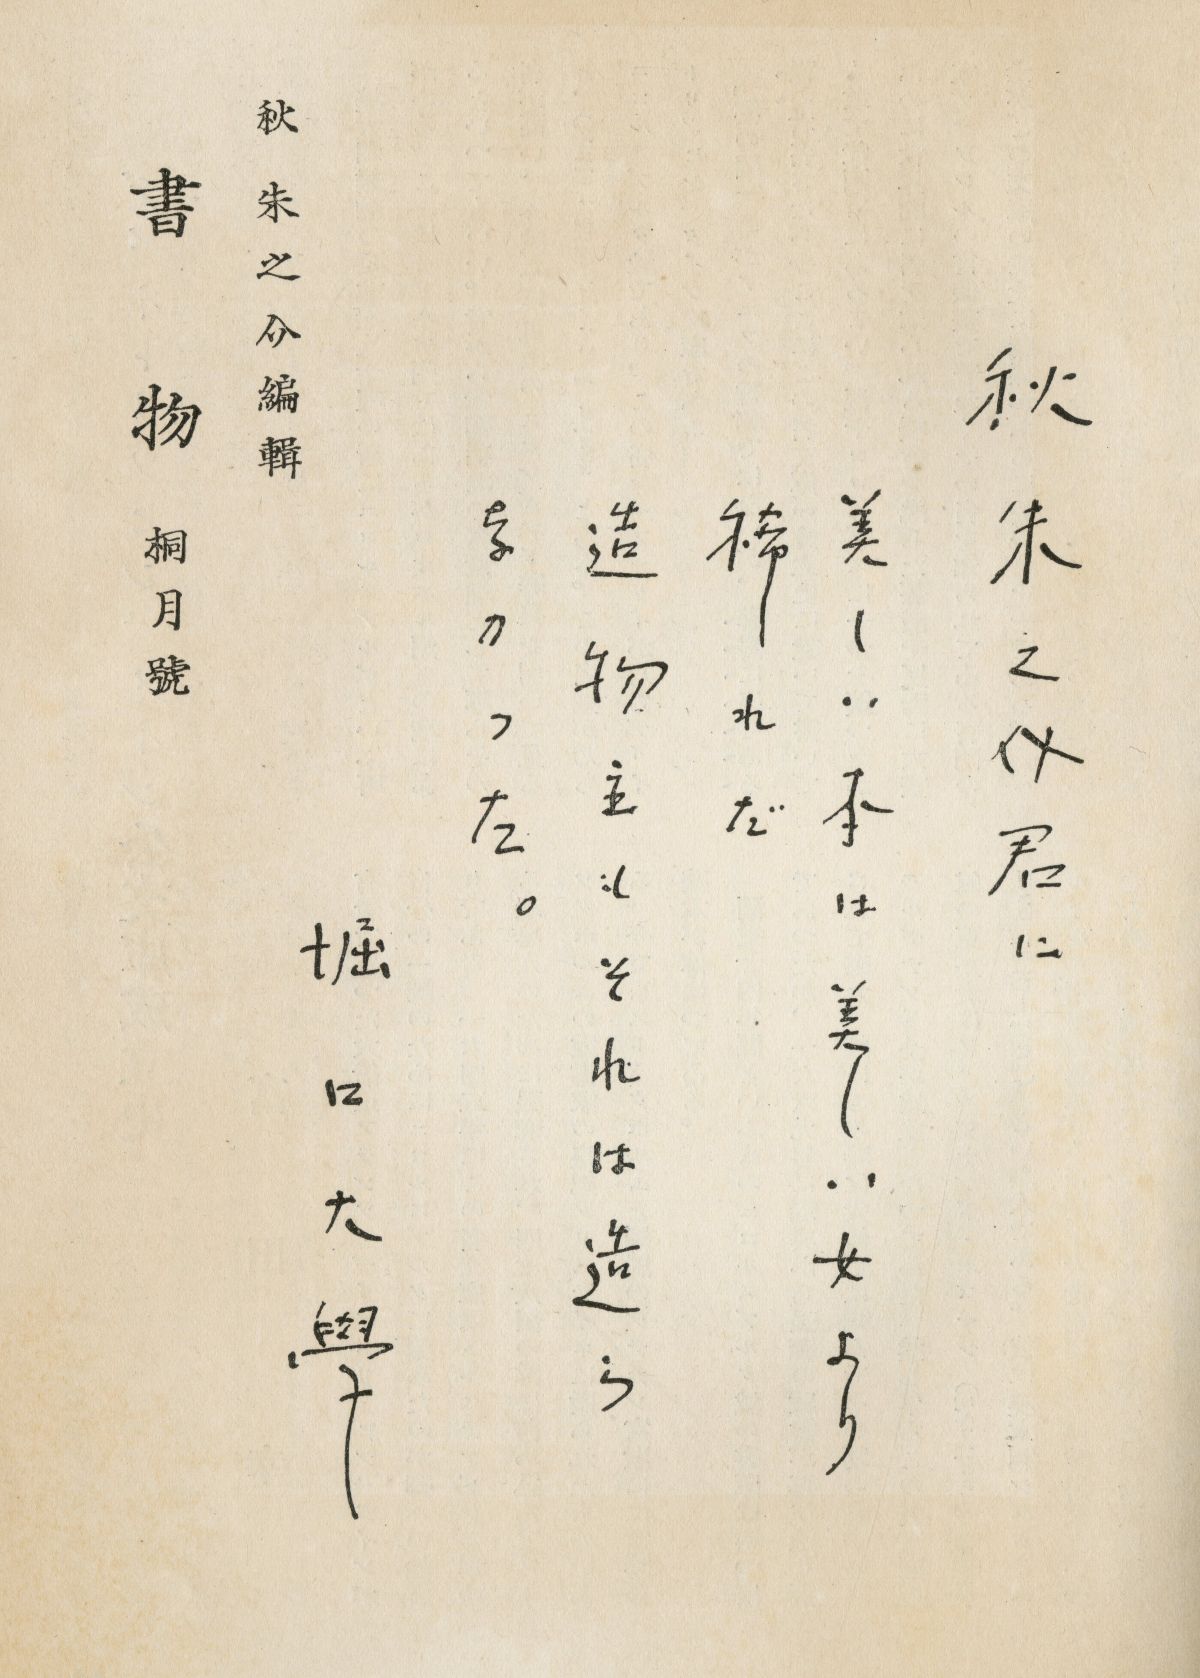 秋朱之介君に
美しい本は美しい女より
稀れだ
造物主もそれは造ら
なかつた。
堀口大學
秋朱之介編輯
書物 桐月號